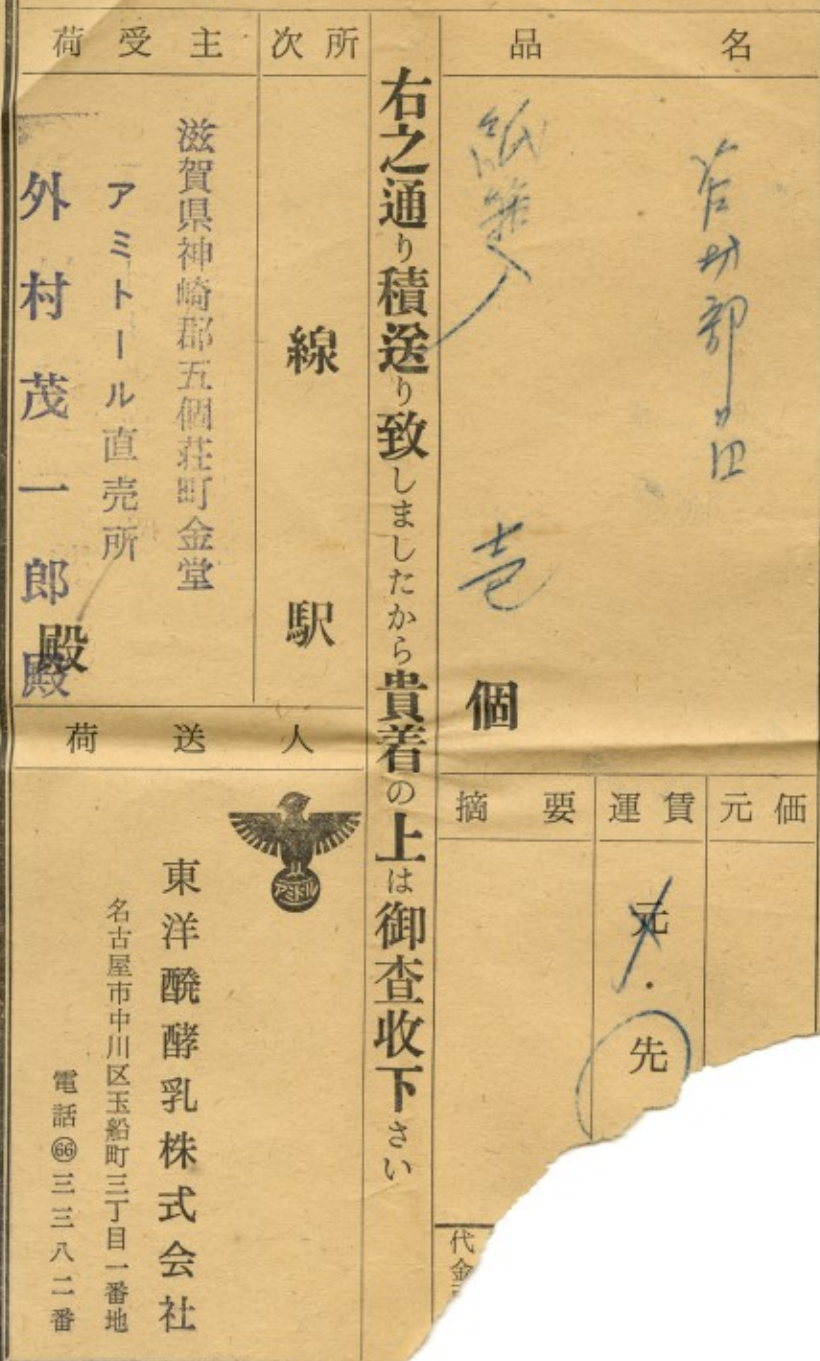 品名
紙箱入
壱
個
元価
運賃
元・先
摘要
代金
右之通り積送り致しましたから貴着の上は御査收下さい
次所
線
駅
荷受主
滋賀県神崎郡五個荘町金堂
アミトール直売所
外村茂一郎殿
殿
荷送人
東洋醗酵乳株式会社
名古屋市中川区玉船町三丁目一番地
電話㊻三三八二番